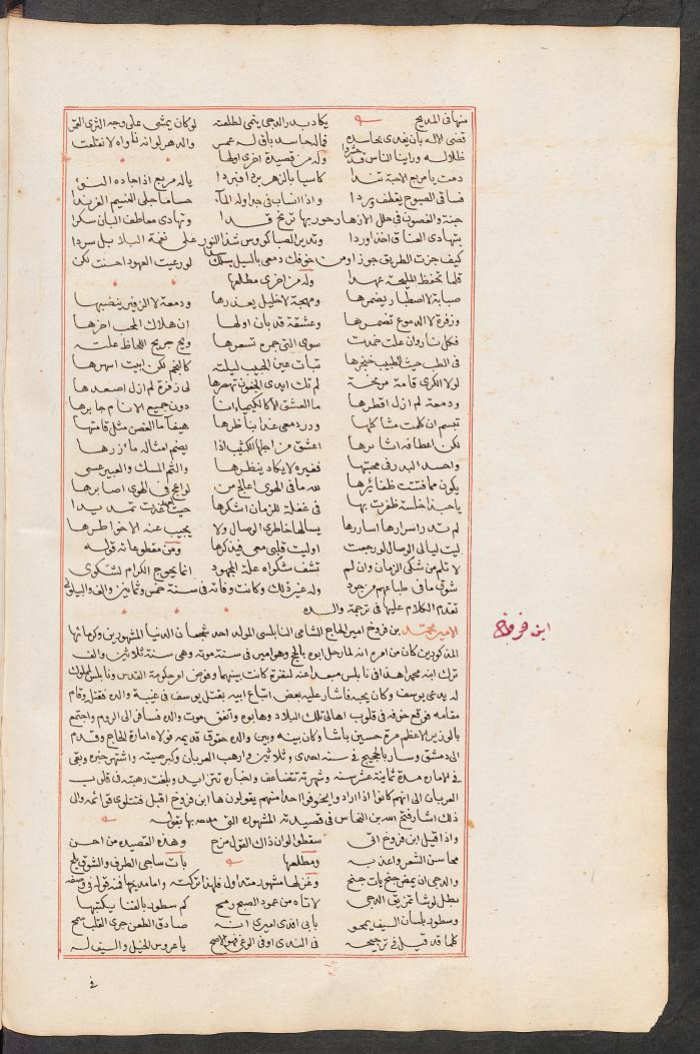 منها في المديح يكاد بدر الدجى ينمى لطلعته لو كان يمشى على وجه الثرى القمر
قضى الاله بأن يفدى بحاسده فاله حاسد باق له عمر والدهر لو انه ناواه لانقلعت
ظلاله ورأينا الناس قد حشروا وله من قصيدة اخرى اولها
دمت يا مربع الاحبة تندا كاسيا بالزهر بردا فبردا ياله مربع اذا جاده النوء
فساقى الصبوح يقطف وردا واذا انساب في جداوله الماء حساما جلى النسيم الفرندا
جنة والغصون في حلل الازهار حور بها ترنح قدا وتهادى معاطف البان سكرا
بتهادى العناق اخذا وردا وتدير الصبا كؤوس شذا النور على نغمة البلابل سردا
كيف جزت الطريق جوزا ومن خوفك دمعى بالليل يسلك لو رعيت العهود احسنت لكن
قلما تحفظ المليحة عهدا وله من اخرى مطلعها
صبابة لاصطبار يضمرها ومهجة لا خليل يعذرها ودمعة لا الزفير ينضبها
وزفرة لا الدموع تضمرها وعشقة قد بان اولها ان هلاك المحب اخرها
فكل نار وان علت خمدت سوى التى جمره تسعرها ويح جريح اللحاظ علته
في الطب حيث الطبيب خنجرها تبات عين الحبيب ليلته كالنجم لكن ابيت اسهرها
لولا الكرى قامة مرنحة لم تك ايدى الجفون تهصرها لى زفرة لم ازل اصعدها
ودمعة لم ازل اقطرها ما العشق الا كالكيمياء انا دون جميع الانام جابرها
تبسم ان كلت مشاكلها ودر دمعى غدا يناظرها هيفا ما الغصن مثل قامتها
لكن اعطافه اشايرها اعشق من اجلها الكثيب اذا يضم امثاله مازرها
واحسد البدر في محبتها فغيره لا يكاد ينظرها والثم المسك والعبير عسى
يكون مما فتتت ظفائرها لله ما في الهوى اعالج من لواعج في الهوى اصابرها
يا حبذا خلسة ظفرت بها في غفلة للزمان اشكرها حيث غدت تمد يدا
لم تدر اسرارها اساورها يسالها خاطرى الوصال ولا يجيب عنه الا خواطرها
ليت ليالى الوصال لو رجعت او ليت قلبى معى فيذكرها ومن مقطوعاته قوله
لا تلم من شكى الزمان وان لم تشف شكواه علة المجهود انما يحوج الكرام لشكوى
شوق ما في طباعهم من جود وله غير ذلك وكانت وفاته في سنة خمس وثمانين والف والبيلونى
تقدم الكلام عليها في ترجمة والده
الامير محمد بن فروخ امير الحاج الشامى النابلسى المولد احد شجعان الدنيا المشهورين وكرمائها
المذكورين كان من امره انه لما رحل ابوه بالحج وهو امير في سنة موته وهى سنة ثلاثين والف
ترك ابنه محمد اهذا في نابلس مبعدا عنه لنفرة كانت بينهما وفوض امر حكومة القدس ونابلس لمملوك
له يدعى يوسف وكان يحبه فاشار عليه بعض اتباع ابيه بقتل يوسف في غيبة والده فقتله وقام
مقامه فوقع خوفه في قلوب اهالى تلك البلاد وهابوه واتفق موت والده فسافر الى الروم واجتمع
بالوزير الاعظم مره حسين باشا وكان بينه وبين والده حقوق قديمه فولاه امارة الحاج وقدم
الى دمشق وسار بالحجيج في سنة احدى وثلاثين وارهب العربان وكبر صيته واشتهر خبره وبقى
في الاماره مدة ثمانية عشر سنه وشهرته تتضاعف واخباره تتزايد وبلغت رهبته في قلوب
العربان الى انهم كانوا اذا ارادوا يخوفوا احدا منهم يقولون ها ابن فروخ اقبل فتتلوى قوائمه والى
ذلك اشار فتح الله بن النحاس في قصيدته المشهوره التى مدحه بها بقوله
واذا قيل ابن فروخ اتى سقطوا لو ان ذاك القول مزح وهذه القصيده من احسن
محاسن الشعر واعذبه ومطلعها بات ساجى الطرف والشوق يلح
والدجى ان يمض جنح يات جنح وغزلها مشهور متداول فلهذا تركته واما مديحها فمنه قوله في وصفه
بطل لو شا تمزيق الدجى لاتاه من عمود الصبح رمح كم سطور بالقنا يكتبها
وسطور بلسان السيف يمحو بابى افدى اميرى انه صادق الطعن جرى القلب سمح
كلما قد قيل في ترجيحه في الندى او في الوغى فهو الاصح يا عروس الخيل والسيف له
في
ابن فروخ